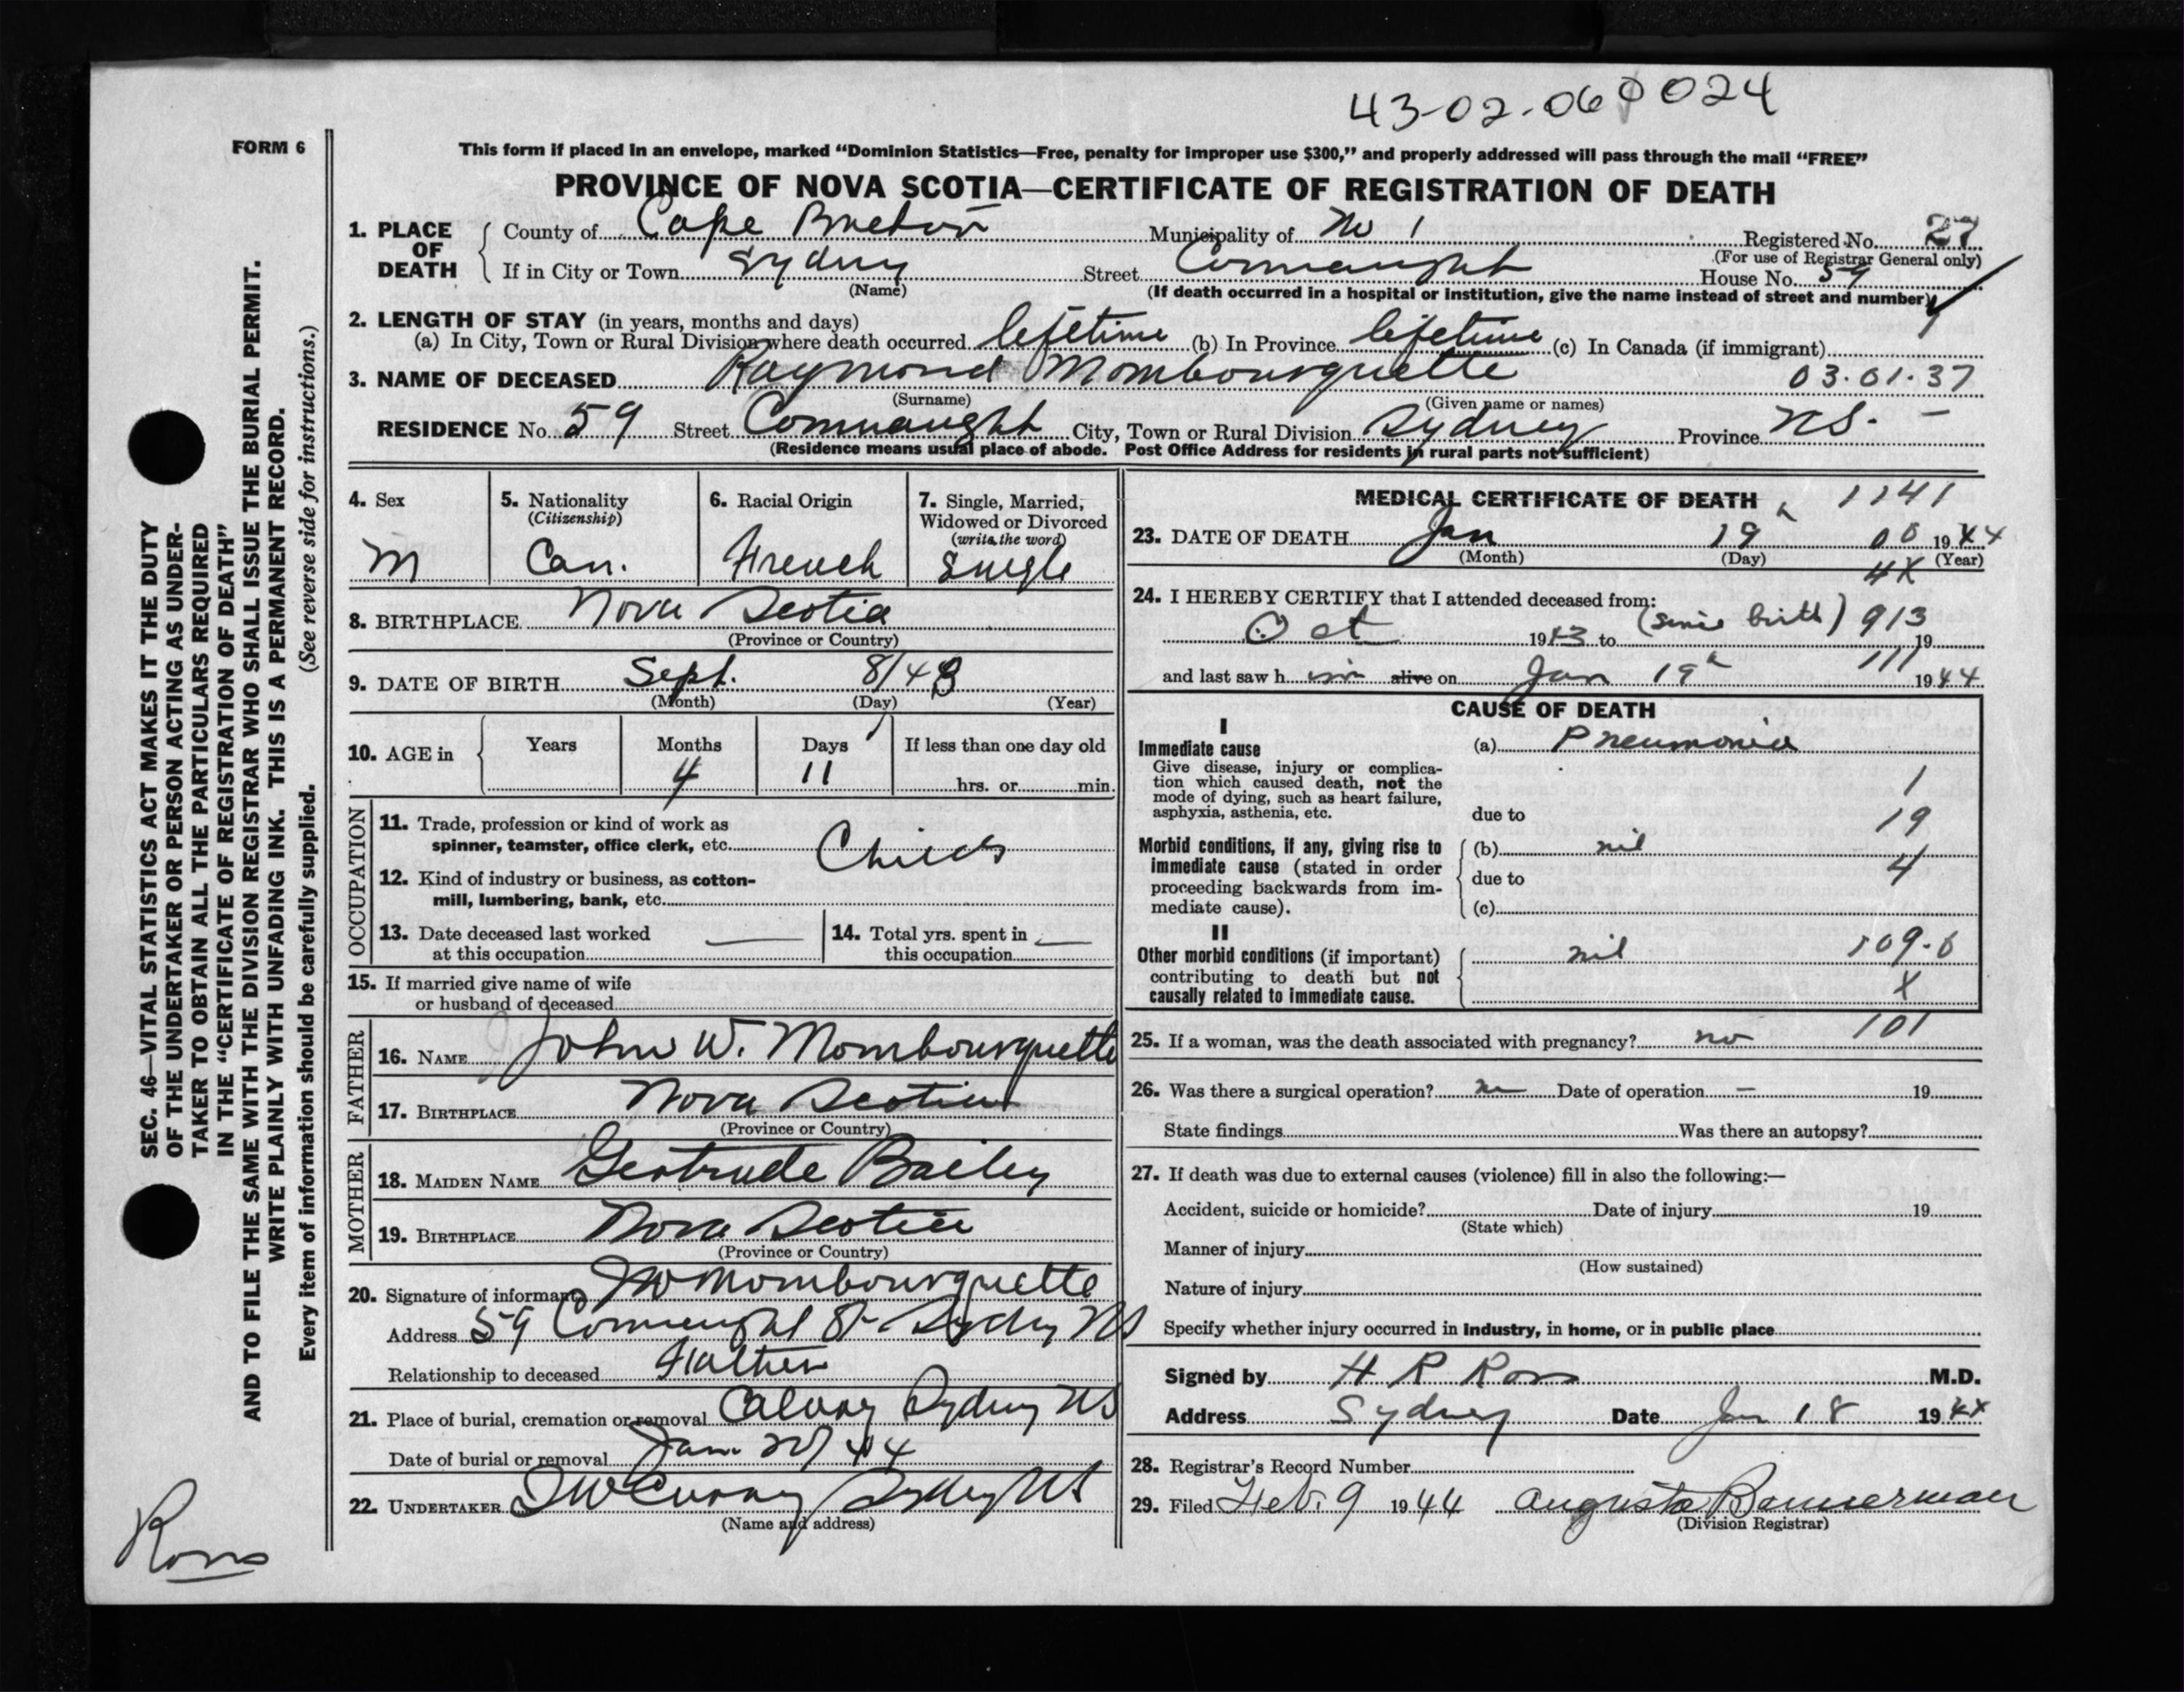 43-02-060024
FORM 6
This form if placed in an envelope, marked “Dominion Statistics—Free, penalty for improper use $300,” and properly addressed will pass through the mail “FREE”
PROVINCE OF NOVA SCOTIA—CERTIFICATE OF REGISTRATION OF DEATH
1. PLACE OF DEATH County of Cape Breton Municipality of No 1 Registered No. 27
(For use of Registrar General only)
If in City or Town Sydney Street Connaught House No. 59
(Name) (If death occurred in a hospital or institution, give the name instead of street and number)
2. LENGTH OF STAY (in years, months and days)
(a) In City, Town or Rural Division where death occurred lifetime (b) In Province lifetime (c) In Canada (if immigrant)
3. NAME OF DECEASED Raymond Mombourquette 03.01.37
(Surname) (Given name or names)
RESIDENCE No. 59 Street Connaught City, Town or Rural Division Sydney Province NS. –
(Residence means usual place of abode. Post Office Address for residents in rural parts not sufficient)
4. Sex 5. Nationality (Citizenship) 6. Racial Origin 7. Single, Married, Widowed or Divorced (write the word)
M Can. French Single
8. BIRTHPLACE Nova Scotia
(Province or Country)
9. DATE OF BIRTH Sept. 8/43
(Month) (Day) (Year)
10. AGE in Years Months Days If less than one day old
4 11 hrs. or min.
OCCUPATION
11. Trade, profession or kind of work as spinner, teamster, office clerk, etc. Child
12. Kind of industry or business, as cotton-mill, lumbering, bank, etc.
13. Date deceased last worked at this occupation —
14. Total yrs. spent in this occupation —
15. If married give name of wife or husband of deceased
FATHER
16. NAME John W. Mombourquette
17. BIRTHPLACE Nova Scotia
(Province or Country)
MOTHER
18. MAIDEN NAME Gertrude Bailey
19. BIRTHPLACE Nova Scotia
(Province or Country)
20. Signature of informant JW Mombourquette
Address 59 Connaught St Sydney NS
Relationship to deceased Father
21. Place of burial, cremation or removal Calvary Sydney NS
Date of burial or removal Jan. 20/44
22. UNDERTAKER Sydney NS
(Name and address)
MEDICAL CERTIFICATE OF DEATH 1141
23. DATE OF DEATH Jan 19 00 1944
(Month) (Day) (Year)
4X
24. I HEREBY CERTIFY that I attended deceased from:
Oct 1943 to (since birth) 913 19
and last saw h im alive on Jan 19 111 1944
CAUSE OF DEATH
I
Immediate cause
Give disease, injury or complication which caused death, not the mode of dying, such as heart failure, asphyxia, asthenia, etc.
(a) Pneumonia
1
due to 19
Morbid conditions, if any, giving rise to immediate cause (stated in order proceeding backwards from immediate cause).
(b) nil
due to 4
(c)
II
Other morbid conditions (if important) contributing to death but not causally related to immediate cause.
nil 109-0
X
25. If a woman, was the death associated with pregnancy? no 101
26. Was there a surgical operation? no Date of operation – 19
State findings Was there an autopsy?
27. If death was due to external causes (violence) fill in also the following:—
Accident, suicide or homicide? Date of injury 19
(State which)
Manner of injury
(How sustained)
Nature of injury
Specify whether injury occurred in industry, in home, or in public place
Signed by H R Ross M.D.
Address Sydney Date Jan 18 1944
28. Registrar's Record Number
29. Filed Feb. 9 1944 Augusta Bannerman
(Division Registrar)
SEC. 46—VITAL STATISTICS ACT MAKES IT THE DUTY
OF THE UNDERTAKER OR PERSON ACTING AS UNDER-
TAKER TO OBTAIN ALL THE PARTICULARS REQUIRED
IN THE “CERTIFICATE OF REGISTRATION OF DEATH”
AND TO FILE THE SAME WITH THE DIVISION REGISTRAR WHO SHALL ISSUE THE BURIAL PERMIT.
WRITE PLAINLY WITH UNFADING INK. THIS IS A PERMANENT RECORD.
Every item of information should be carefully supplied. (See reverse side for instructions.)
Ross